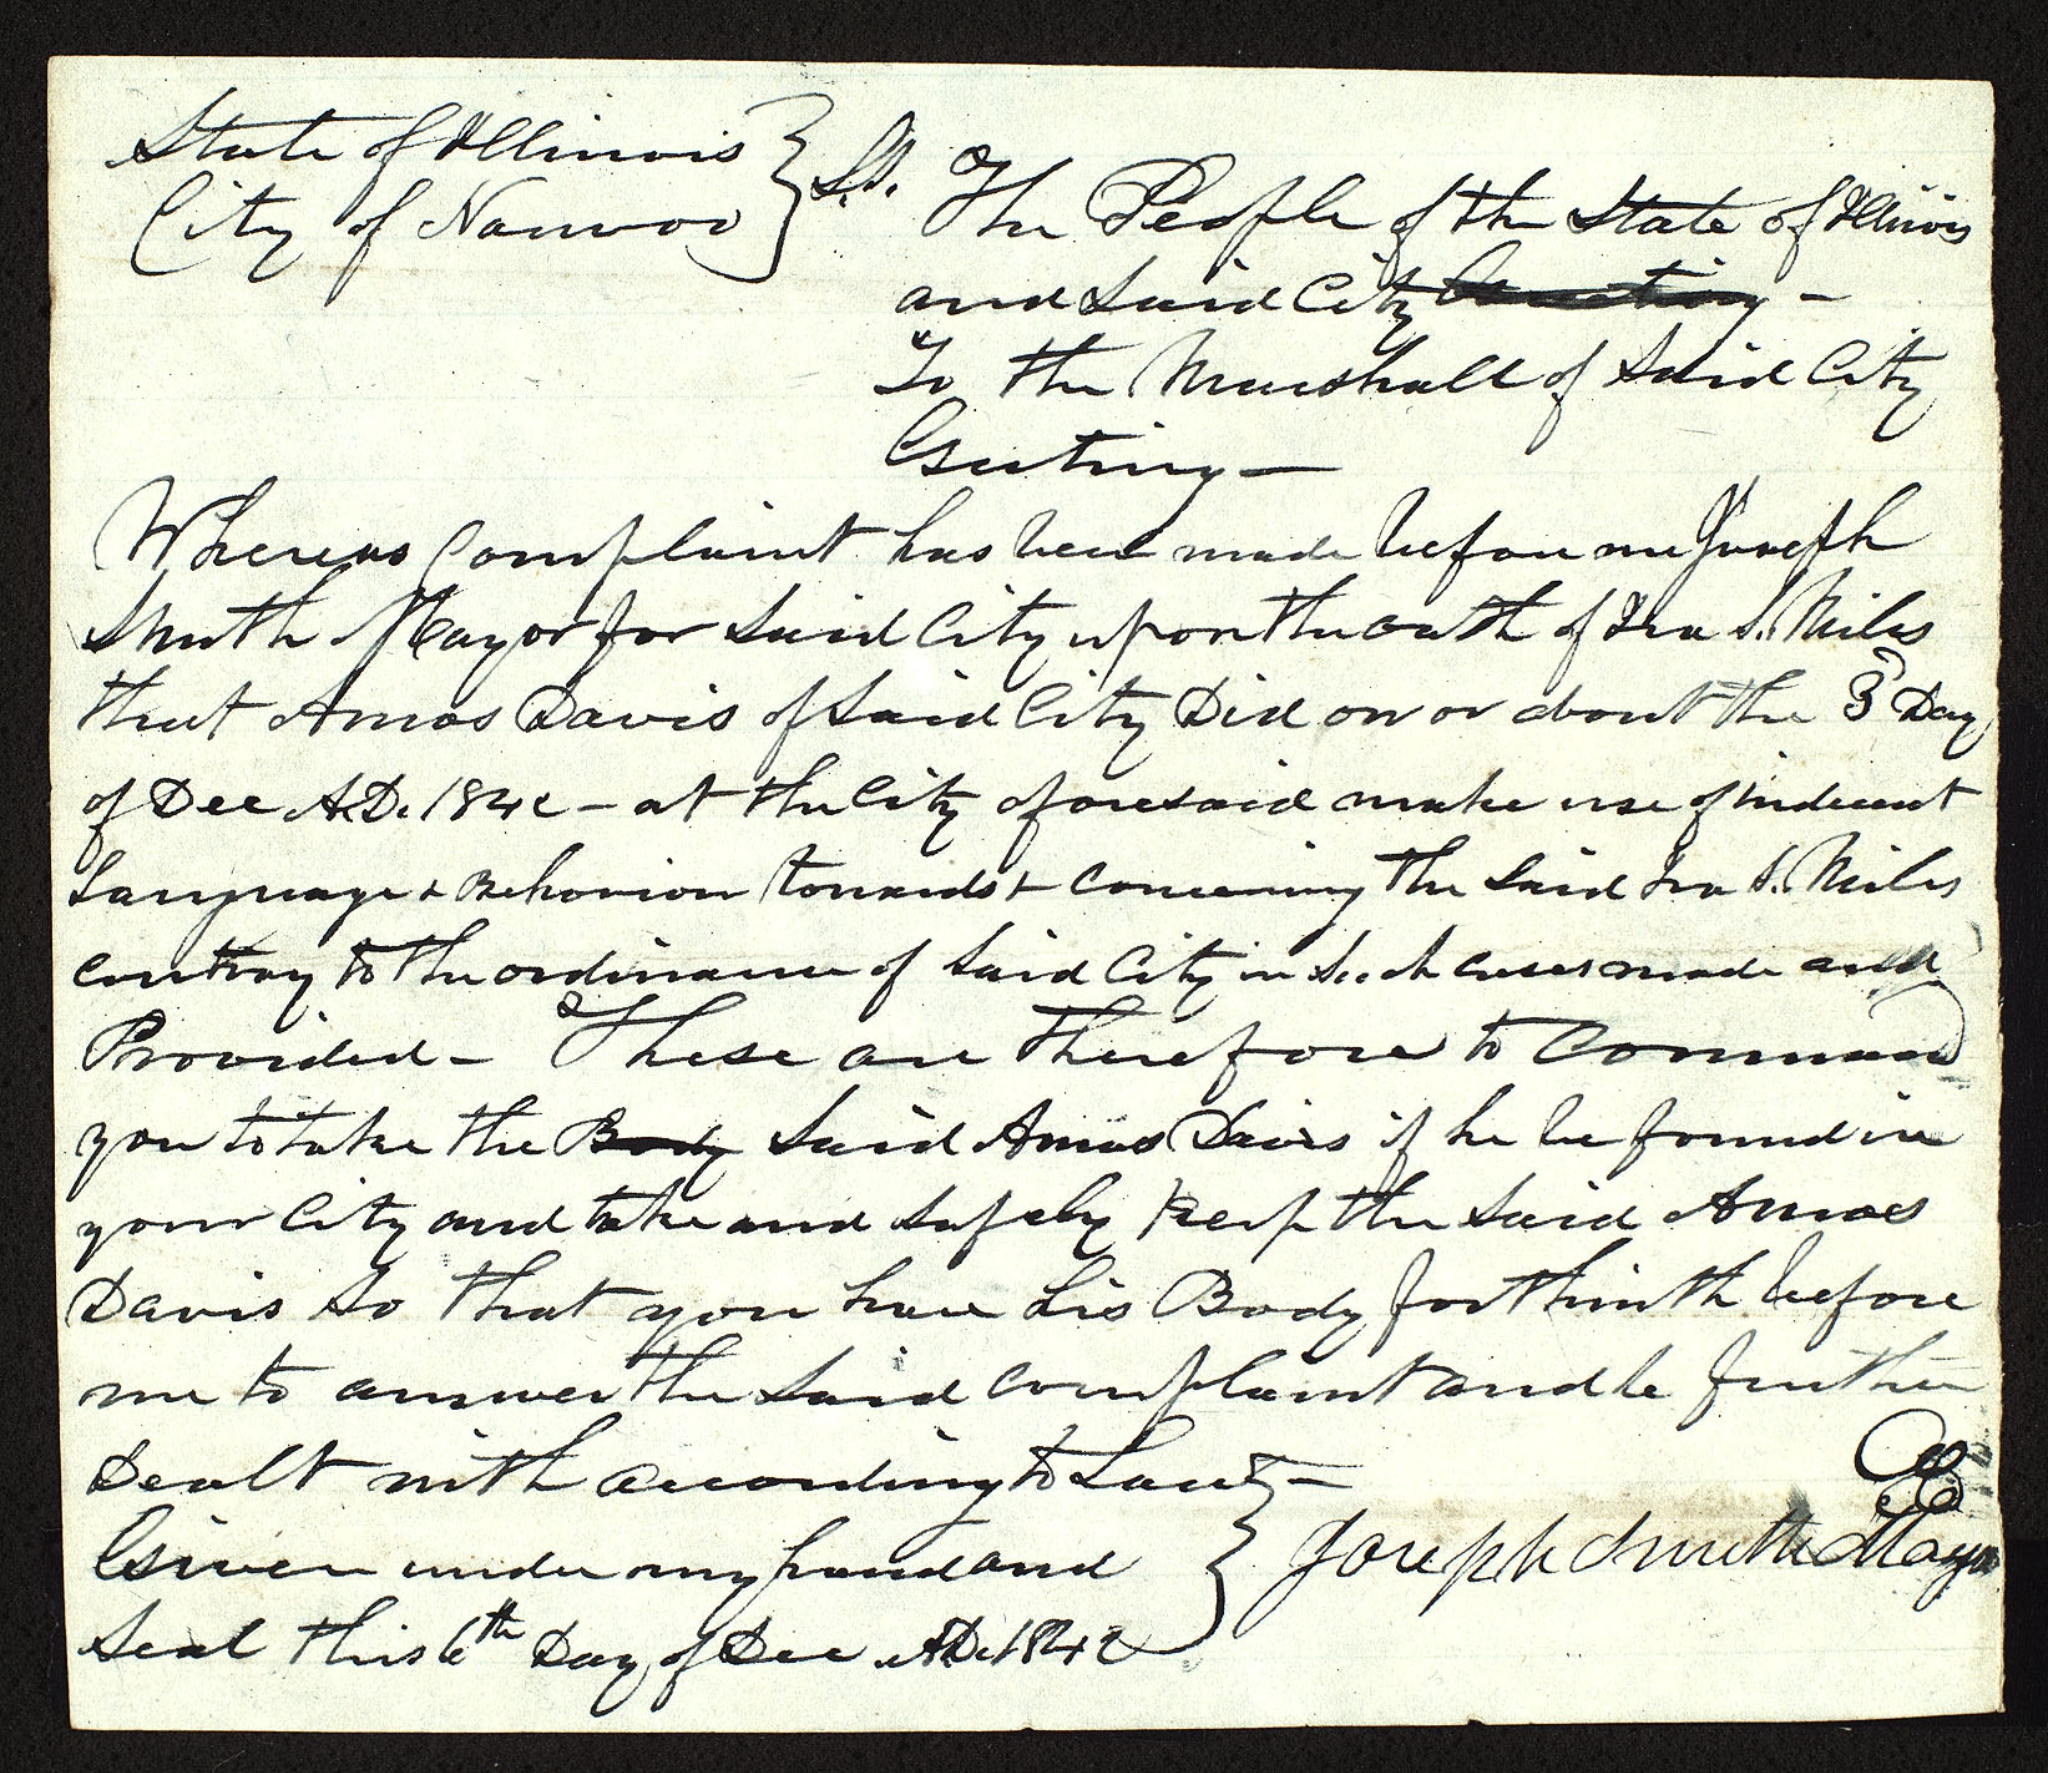 State of Illinois } S.S. The People of the State of Illinois
City of Nauvoo } 
and Said City Greeting –
To the Marshall of Said City
Greeting —
Whereas Complaint has been made before me Joseph
Smith Mayor for Said City upon the oath of Ira S. Miles
that Amos Davis of Said City Did on or about the 3d Day
of Dec A.D. 1842 – at the City aforesaid make use of indecent
Language & Behavior towards & Concerning the Said Ira S. Miles
contray to the ordinance of Said City in Such cases made and
Provided – These are therefore to Command
you to take the Body Said Amos Davis if he be found in
your City and take and Safely Keep the Said Amos
Davis So that you have his Body forthwith before
me to answer the Said complaint and be further
Dealt with according to Law –
Given under my hand and } Joseph Smith Mayor
Seal this 6th Day of Dec A.D. 1842